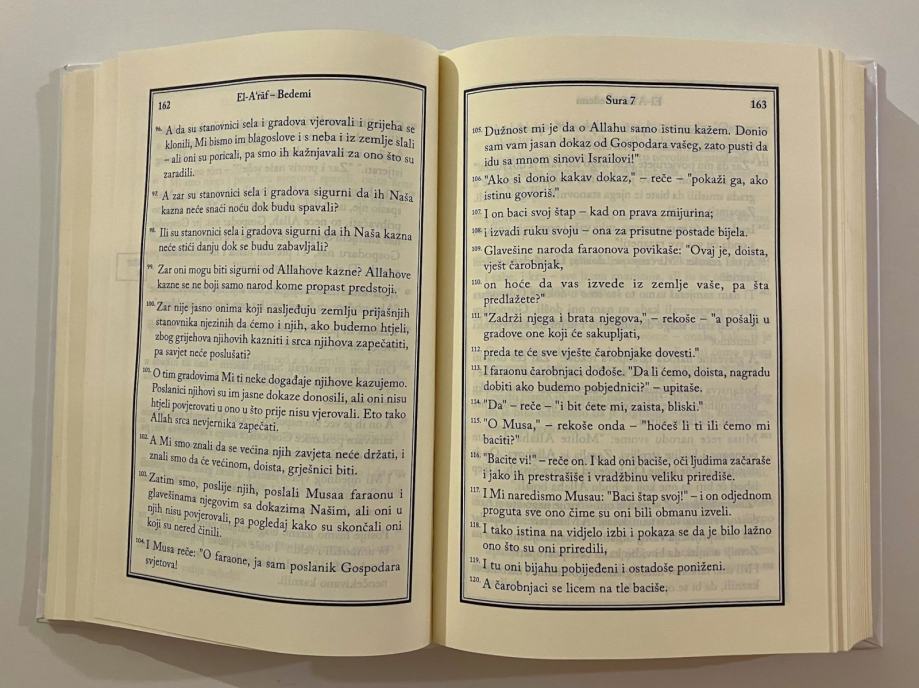 162
El-A'rāf – Bedemi
96. A da su stanovnici sela i gradova vjerovali i grijeha se
klonili, Mi bismo im blagoslove i s neba i iz zemlje slali
– ali oni su poricali, pa smo ih kažnjavali za ono što su
zaradili.
97. A zar su stanovnici sela i gradova sigurni da ih Naša
kazna neće snaći noću dok budu spavali?
98. Ili su stanovnici sela i gradova sigurni da ih Naša kazna
neće stići danju dok se budu zabavljali?
99. Zar oni mogu biti sigurni od Allahove kazne? Allahove
kazne se ne boji samo narod kome propast predstoji.
100. Zar nije jasno onima koji nasljeđuju zemlju prijašnjih
stanovnika njezinih da ćemo i njih, ako budemo htjeli,
zbog grijehova njihovih kazniti i srca njihova zapečatiti,
pa savjet neće poslušati?
101. O tim gradovima Mi ti neke događaje njihove kazujemo.
Poslanici njihovi su im jasne dokaze donosili, ali oni nisu
htjeli povjerovati u ono u što prije nisu vjerovali. Eto tako
Allah srca nevjernika zapečati.
102. A Mi smo znali da se većina njih zavjeta neće držati, i
znali smo da će većinom, doista, grješnici biti.
103. Zatim smo, poslije njih, poslali Musaa faraonu i
glavešinama njegovim sa dokazima Našim, ali oni u
njih nisu povjerovali, pa pogledaj kako su skončali oni
koji su nered činili.
104. I Musa reče: "O faraone, ja sam poslanik Gospodara
svjetova!
Sura 7
163
105. Dužnost mi je da o Allahu samo istinu kažem. Donio
sam vam jasan dokaz od Gospodara vašeg, zato pusti da
idu sa mnom sinovi Israilovi!"
106. "Ako si donio kakav dokaz," – reče – "pokaži ga, ako
istinu govoriš."
107. I on baci svoj štap – kad on prava zmijurina;
108. i izvadi ruku svoju – ona za prisutne postade bijela.
109. Glavešine naroda faraonova povikaše: "Ovaj je, doista,
vješt čarobnjak,
110. on hoće da vas izvede iz zemlje vaše, pa šta
predlažete?"
111. "Zadrži njega i brata njegova," – rekoše – "a pošalji u
gradove one koji će sakupljati,
112. preda te će sve vješte čarobnjake dovesti."
113. I faraonu čarobnjaci dođoše. "Da li ćemo, doista, nagradu
dobiti ako budemo pobjednici?" – upitaše.
114. "Da" – reče – "i bit ćete mi, zaista, bliski."
115. "O Musa," – rekoše onda – "hoćeš li ti ili ćemo mi
baciti?"
116. "Bacite vi!" – reče on. I kad oni baciše, oči ljudima začaraše
i jako ih prestrašiše i vradžbinu veliku priredīše.
117. I Mi naredismo Musau: "Baci štap svoj!" – i on odjednom
proguta sve ono čime su oni bili obmanu izveli.
118. I tako istina na vidjelo izbi i pokaza se da je bilo lažno
ono što su oni priredili,
119. I tu oni bijahu pobijeđeni i ostadoše poniženi.
120. A čarobnjaci se licem na tle baciše.